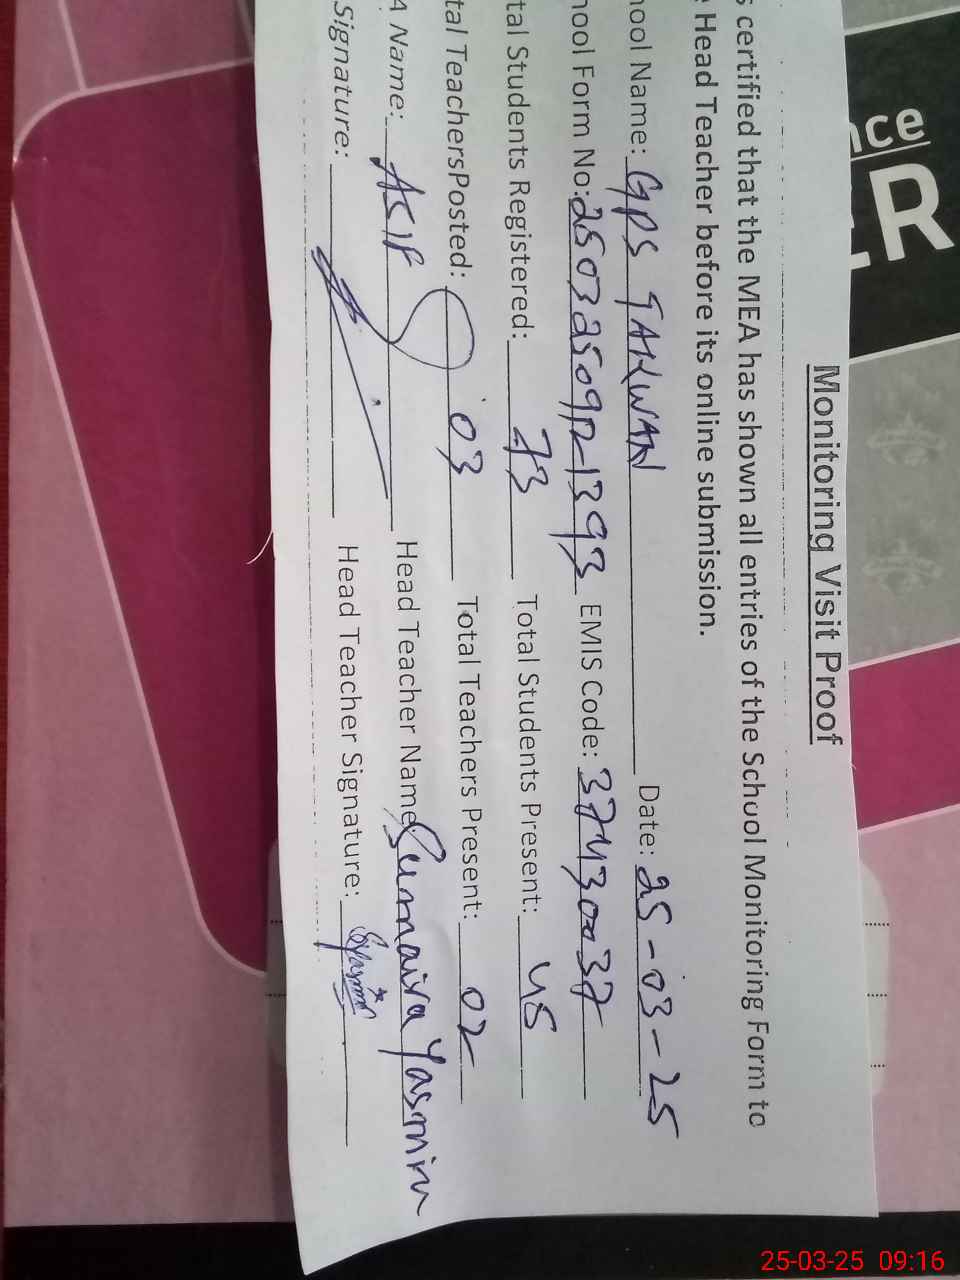 Monitoring Visit Proof
s certified that the MEA has shown all entries of the School Monitoring Form to
e Head Teacher before its online submission.
hool Name: GPS TALWAN Date: 25-03-25
hool Form No: 25032509p-1393 EMIS Code: 37430037
tal Students Registered: 73 Total Students Present: 45
tal TeachersPosted: 03 Total Teachers Present: 02
A Name: ASIF Head Teacher Name: Sumaira Yasmin
Signature: Head Teacher Signature: SYasmin
nce
ER
25-03-25 09:16